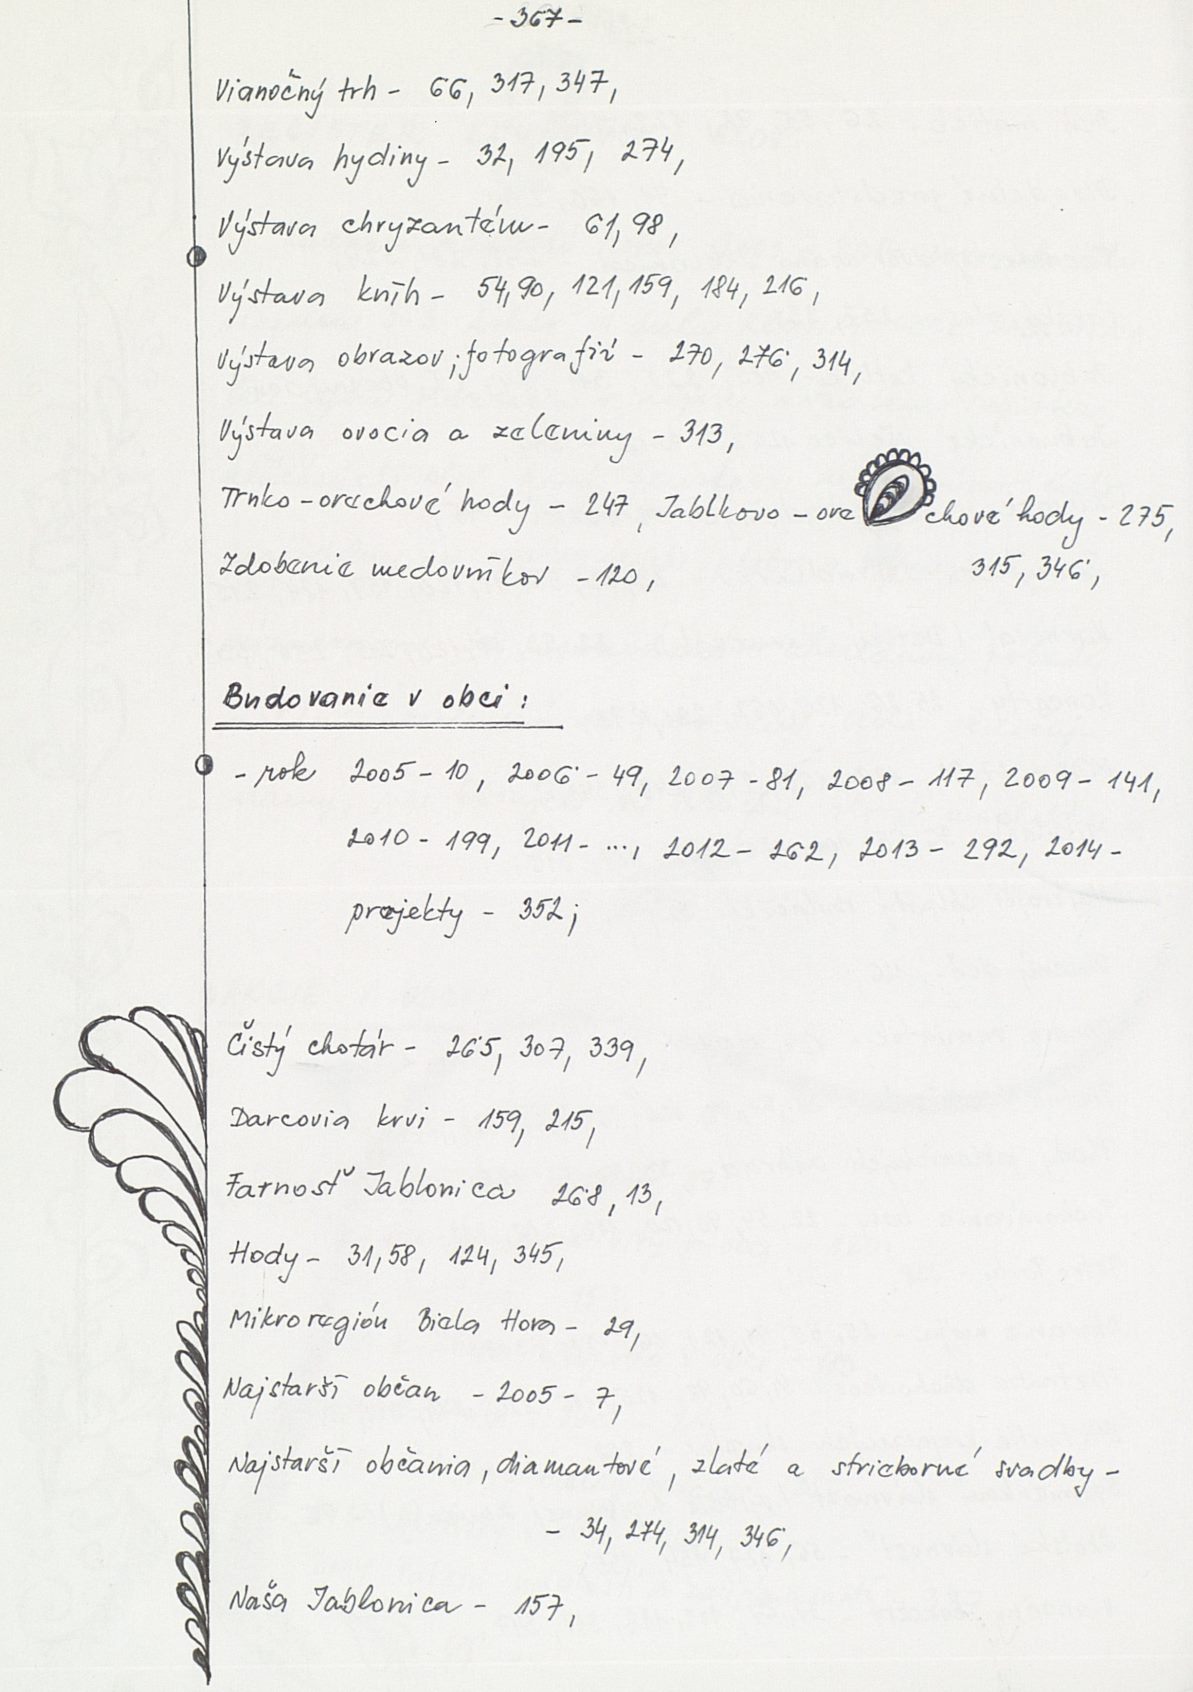 -367-
Vianočný trh - 66, 317, 347,
Výstava hydiny - 32, 195, 274,
Výstava chryzantém - 61, 98,
Výstava kníh - 54, 90, 121, 159, 184, 216,
Výstava obrazov, fotografií - 270, 276, 314,
Výstava ovocia a zeleniny - 313,
Trnko-orechové hody - 247, Jablkovo-orechové hody - 275,
Zdobenie medovníkov - 120, 315, 346,
Budovanie v obci:
- rok 2005 - 10, 2006 - 49, 2007 - 81, 2008 - 117, 2009 - 141,
2010 - 199, 2011 - ..., 2012 - 262, 2013 - 292, 2014 -
projekty - 352;
Čistý chotár - 265, 307, 339,
Darcovia krvi - 159, 215,
Farnosť Jablonica 268, 13,
Hody - 31, 58, 124, 345,
Mikroregión Biela Hora - 29,
Najstarší občan - 2005 - 7,
Najstarší občania, diamantové, zlaté a strieborné svadby -
- 34, 274, 314, 346,
Naša Jablonica - 157,